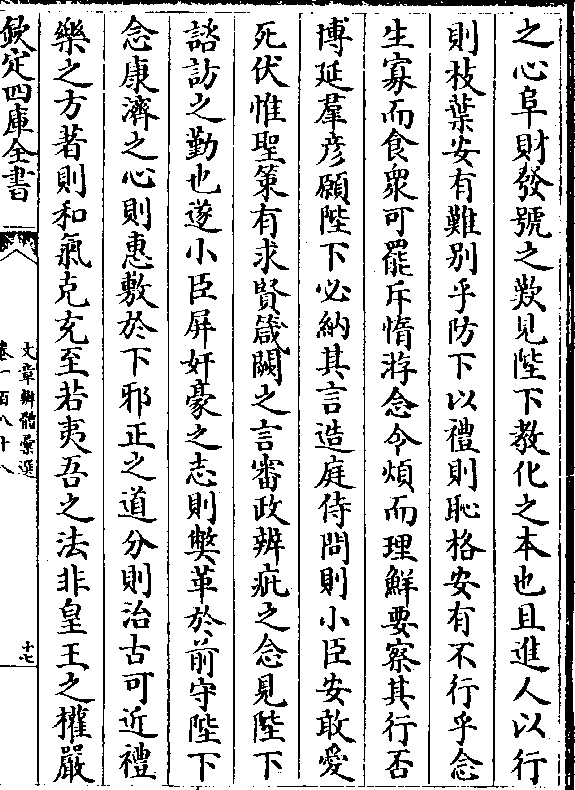 之心阜財發號之歎見陛下教化之本也且進人以行
則枝葉安有難别乎防下以禮則恥格安有不行乎念
生寡而食衆可罷斥惰游念令煩而理鮮要察其行否
博延羣彦願陛下必納其言造庭侍問則小臣安敢愛
死伏惟聖策有求賢箴闕之言審政辨疵之念見陛下
諮訪之勤也遂小臣屏奸豪之志則弊革於前守陛下
念康濟之心則惠敷於下邪正之道分則治古可近禮
樂之方著則和氣克充至若夷吾之法非皇王之權嚴
欽定四庫全書
文章辨體彙選
卷一百八十八
十七